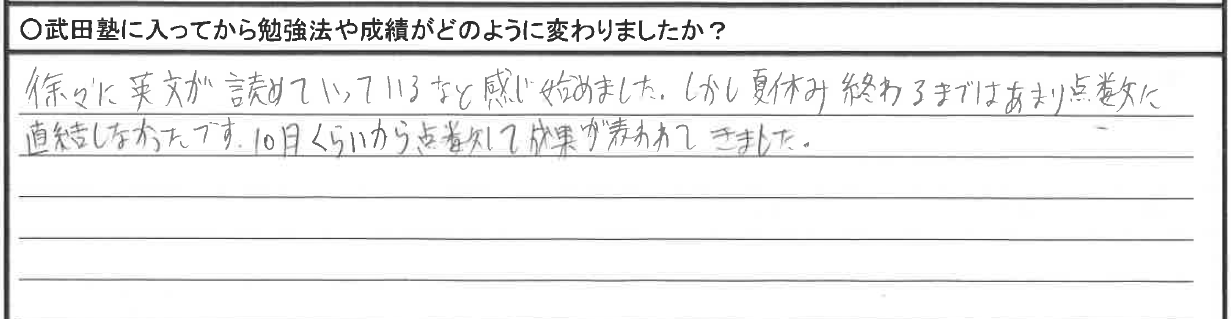 ○武田塾に入ってから勉強法や成績がどのように変わりましたか？
徐々に英文が読めていっているなと感じ始めました。しかし夏休み終わるまではあまり点数に
直結しなかったです。10月くらいから点数として成果が表われてきました。